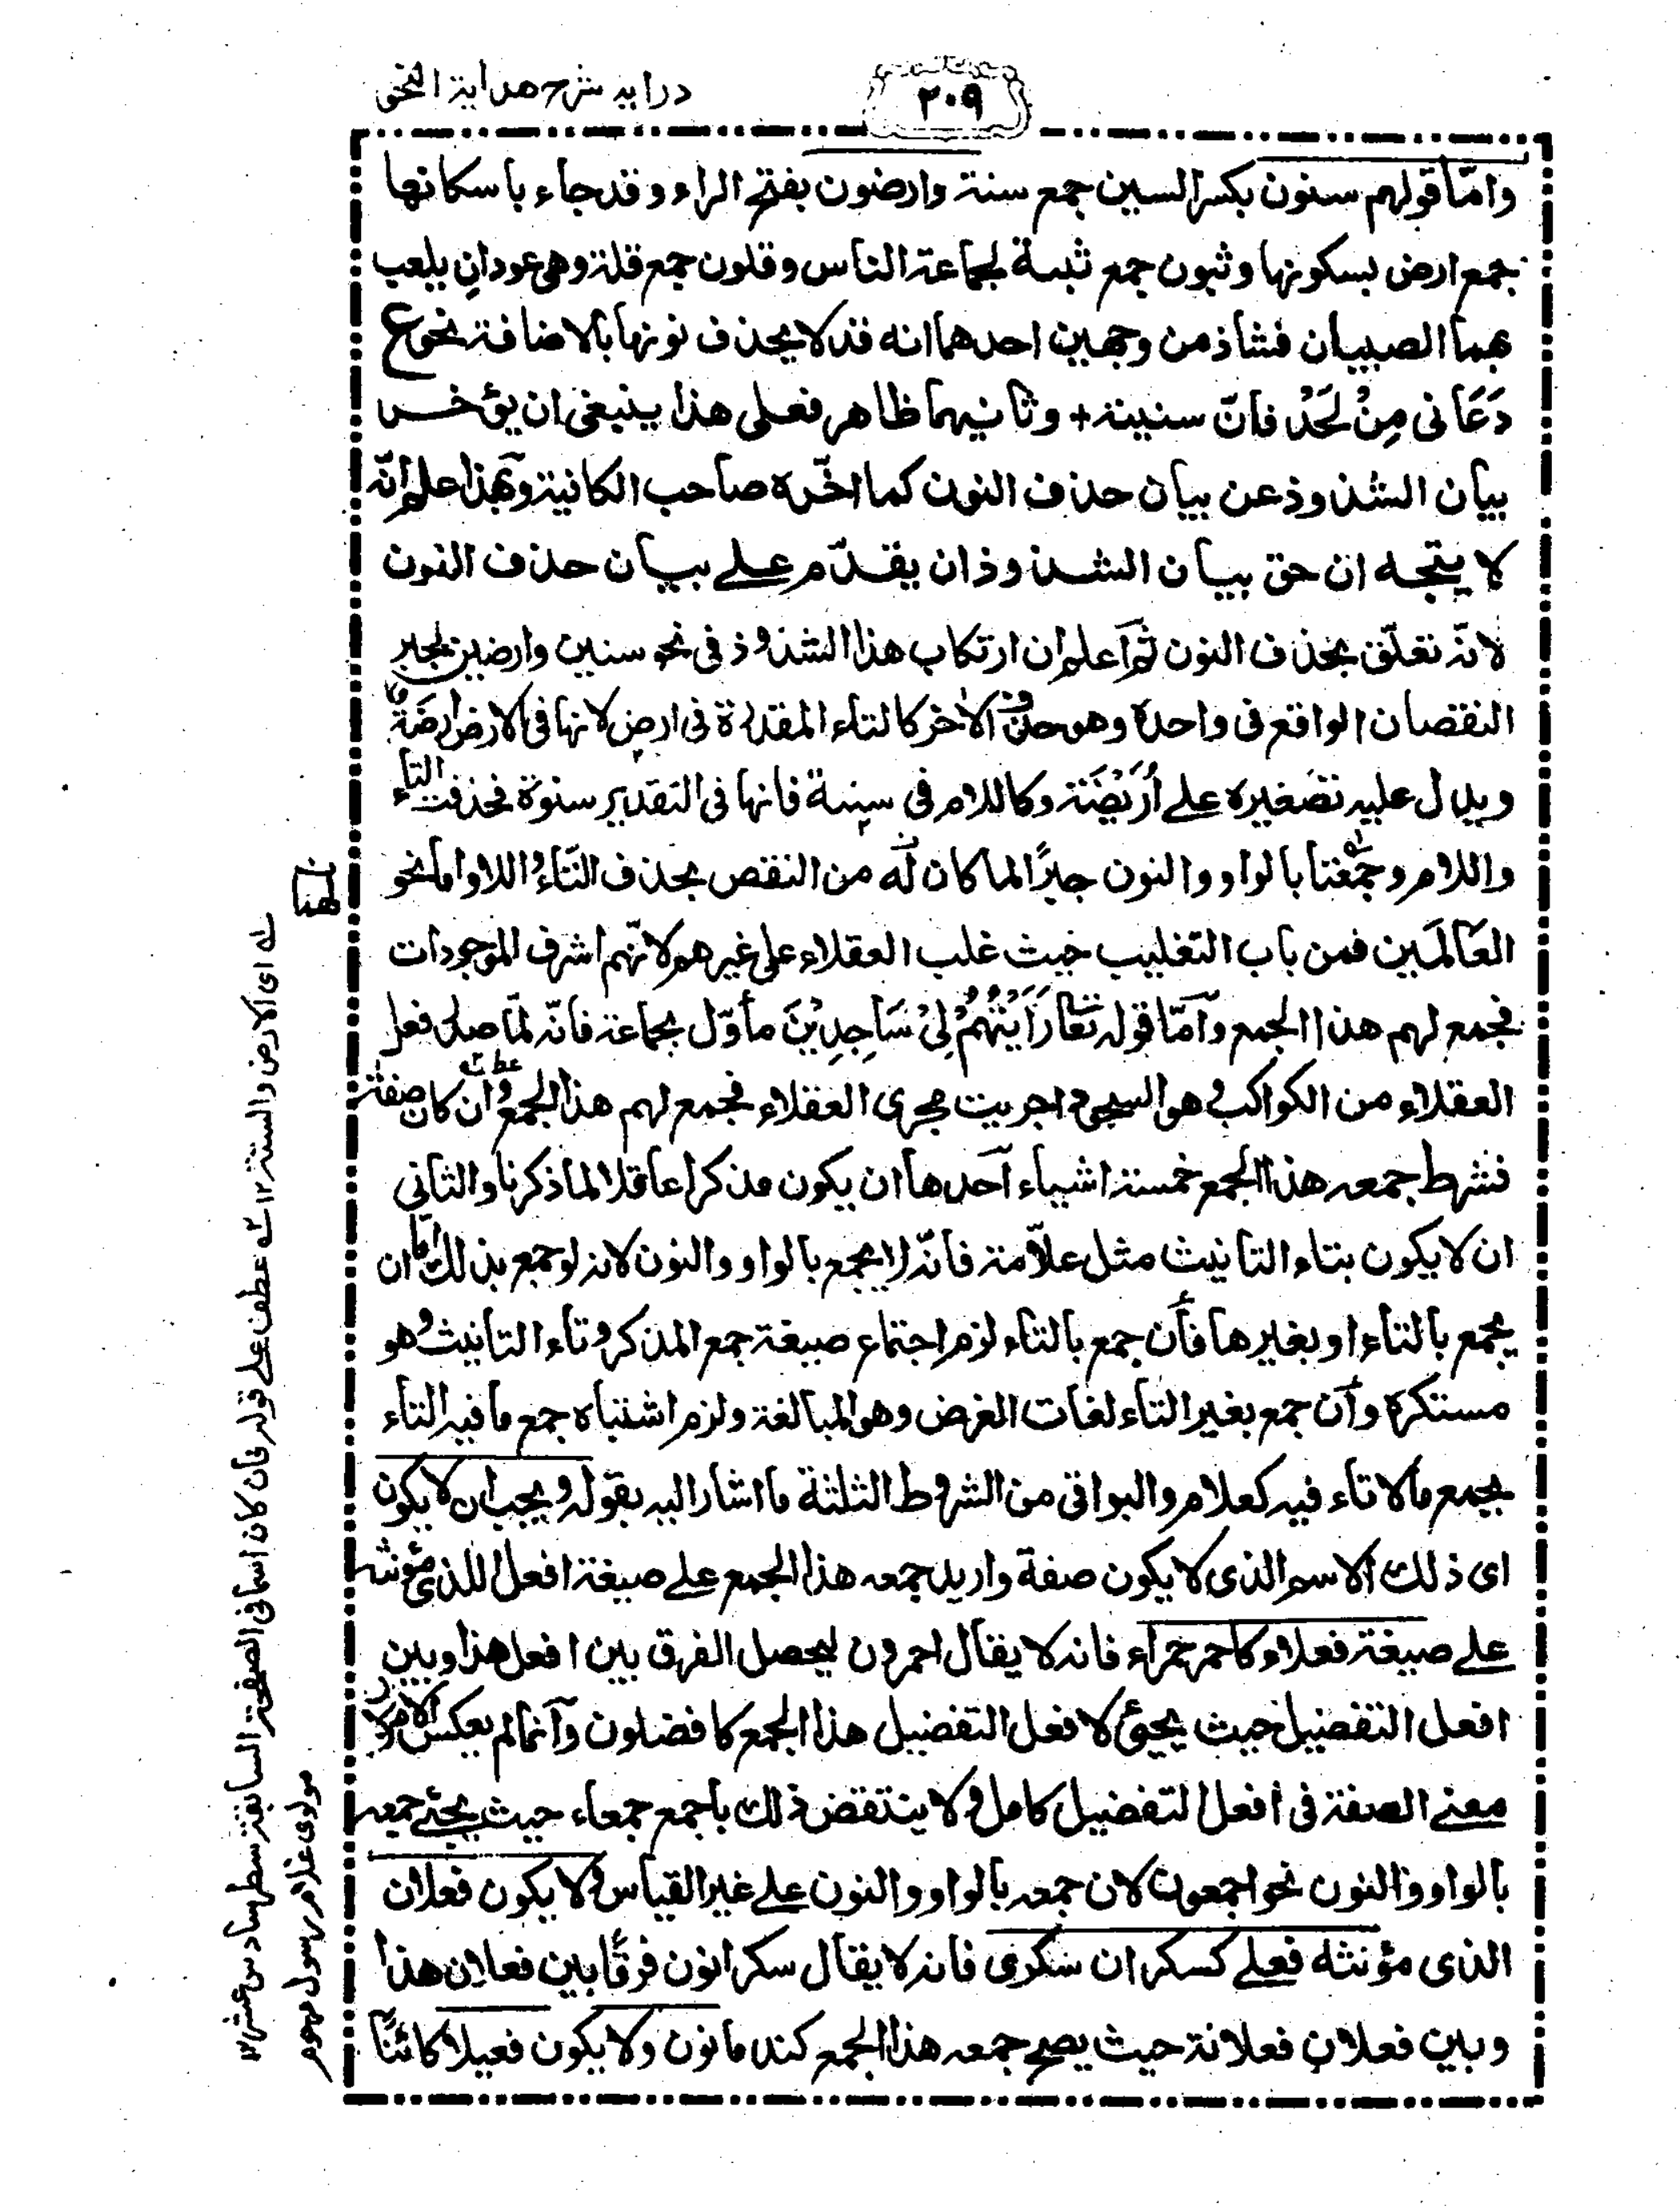 درایه شرح هدایة النحو
۲۰۹
وامّا قولهم سنون بكسر السين جمع سنة وارضون بفتح الراء وقد جاء باسكانها
جمع ارض بسكونها وثبون جمع ثبة لجماعة الناس وقلون جمع قلة وهى عودان يلعب
بهما الصبيان فشاذ من وجهين احدهما انه قد لا يحذف نونها بالاضافة نحو ع
دَعَانى مِنْ نَجْدٍ فانّ سنينه + وثانيهما ظاهر فعلى هذا ينبغى ان يؤخر
بيان الشذوذ عن بيان حذف النون كما اخّره صاحب الكافية وبهذا علم انّه
لا يتجه ان حق بيان الشذوذ ان يقدّم على بيان حذف النون
لانّه تعلّق بحذف النون ثم اعلم ان ارتكاب هذا الشذوذ فى نحو سنين وارضين لجبر
النقصان الواقع فى واحده وهو حذف الآخر كالتاء المقدرة فى ارض لانها فى الارض ارضة
ويدل عليه تصغيره على أُرَيْضَة وكاللام فى سنة فانها فى التقدير سنوة فحذفت التاء
واللام وجمعتا بالواو والنون جبرًا لما كان له من النقص بحذف التاء واللام واما نحو
العَالَمين فمن باب التغليب حيث غلب العقلاء على غيرهم لانّهم اشرف الموجودات
فجمع لهم هذا الجمع وامّا قوله تعا رَاَيْتُهُمْ لِىْ سَاجِدِيْنَ مأوّل بجماعة فانّه لمّا صدر فعل
العقلاء من الكواكب وهو السجود اجريت مجرى العقلاء فجمع لهم هذا الجمع وان كان صفة
فشرط جمعه هذا الجمع خمسة اشياء احدها ان يكون مذكرا عاقلا لما ذكرنا والثانى
ان لا يكون بتاء التانيث مثل علاّمة فانّه لا يجمع بالواو والنون لانه لو جمع بذلك اما ان
يجمع بالتاء او بغيرها فان جمع بالتاء لزم اجتماع صيغة جمع المذكر وتاء التانيث وهو
مستكره وان جمع بغير التاء لفات الغرض وهو المبالغة ولزم اشتباه جمع ما فيه التاء
بجمع ما لا تاء فيه كعلام والبواقى من الشروط الثلثة ما اشار اليه بقوله ويجب ان لا يكون
اى ذلك الاسم الذى لا يكون صفة واريد جمعه هذا الجمع على صيغة افعل الذى مؤنثه
على صيغة فعلاء كاحمر حمراء فانه لا يقال احمرون ليحصل الفرق بين افعل هذا وبين
افعل التفضيل حيث يجئ لافعل التفضيل هذا الجمع كافضلون وانما لم يعكس الامر لان
معنى الصفة فى افعل التفضيل كامل ولا ينتقض ذلك باجمع جمعاء حيث يجئ جمعه
بالواو والنون نحو اجمعون لان جمعه بالواو والنون على غير القياس ولا يكون فعلان
الذى مؤنثه فعلى كسكران سكرى فانه لا يقال سكرانون فرقًا بين فعلان هذا
وبين فعلان فعلانة حيث يصح جمعه هذا الجمع كندمانون ولا يكون فعيلا كائنًا
لهنا
له اى الارض والسنة ۱۲ ۲ه عطف على قوله فان كان اسما فى الصفحة السابقة سطر سادس عشر ۱۲
مولوى غلام رسول مرحوم